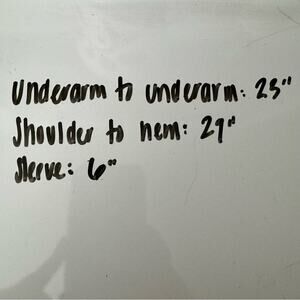 Underarm to underarm: 23"
Shoulder to hem: 29"
Sleeve: 6"